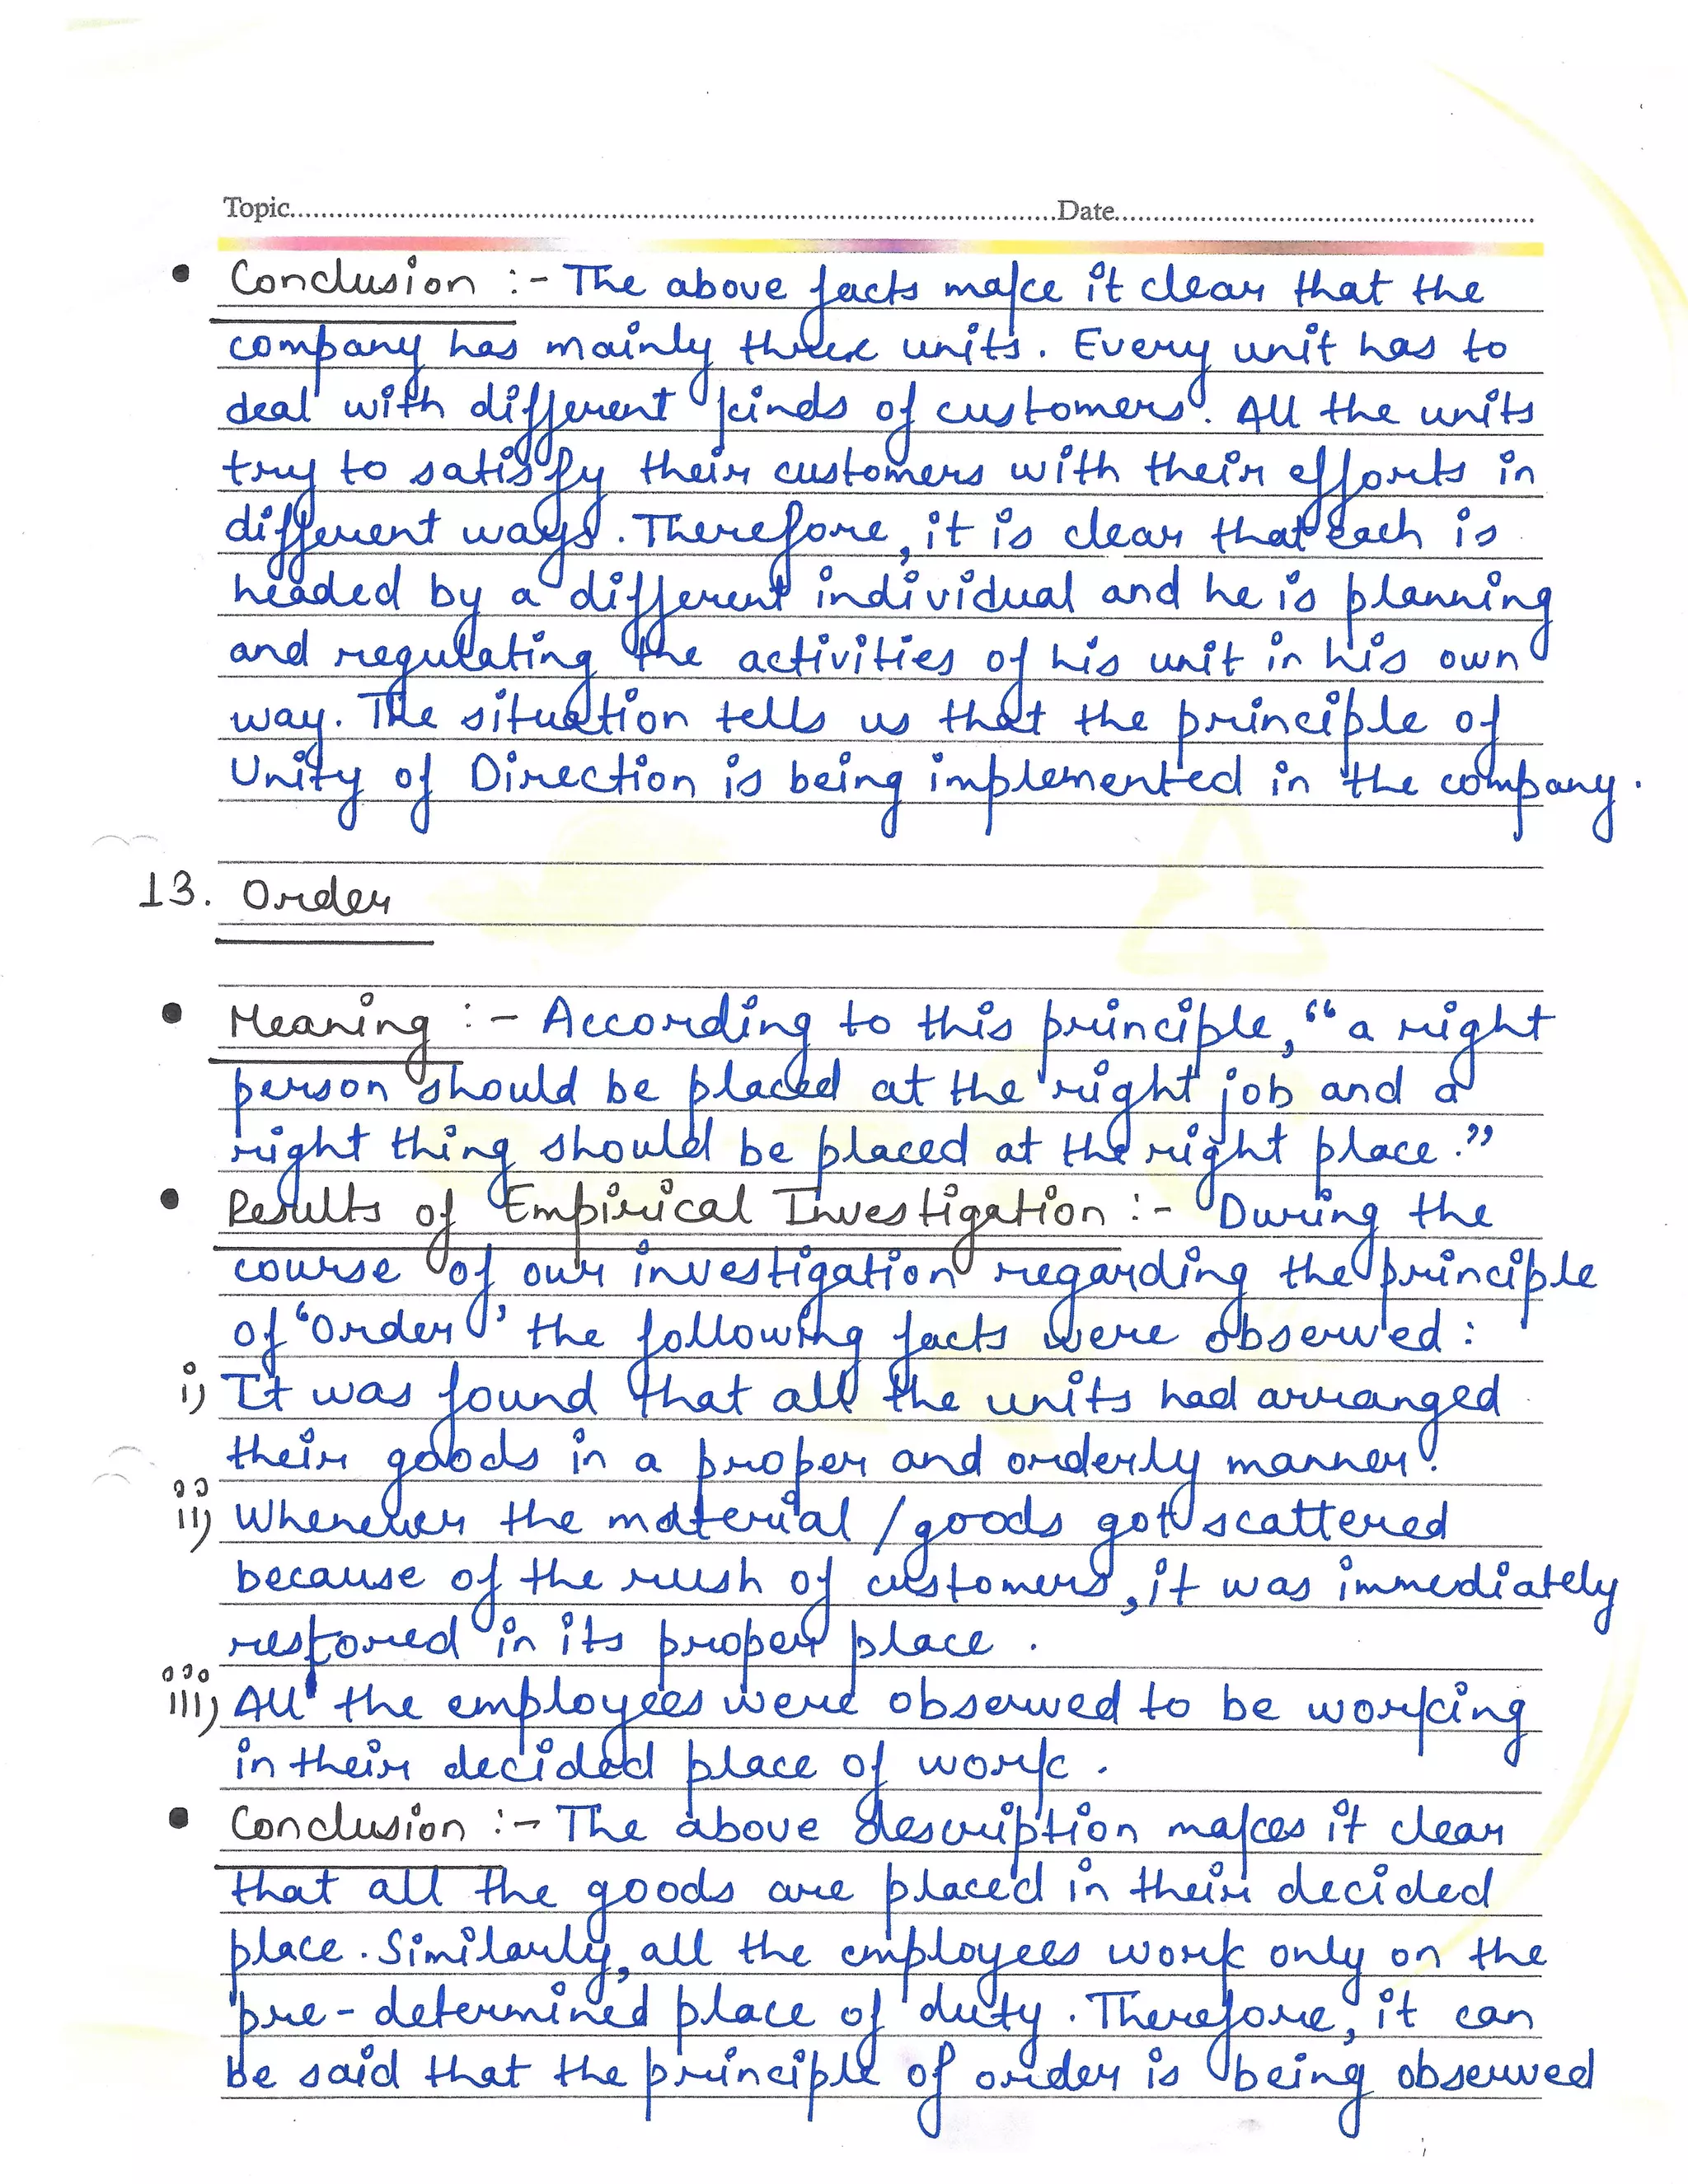 Topic..........Date..........
• Conclusion :- The above facts make it clear that the
company has mainly three units. Every unit has to
deal with different kinds of customers. All the units
try to satisfy their customers with their efforts in
different ways. Therefore, it is clear that each is
headed by a different individual and he is planning
and regulating the activities of his unit in his own
way. The situation tells us that the principle of
Unity of Direction is being implemented in the company.
13. Order
• Meaning :- According to this principle, “a right
person should be placed at the right job and a
right thing should be placed at the right place.”
• Results of Empirical Investigation :- During the
course of our investigation regarding the principle
of ‘Order’ the following facts were observed:
i) It was found that all the units had arranged
their goods in a proper and orderly manner.
ii) Whenever the material / goods got scattered
because of the rush of customers, it was immediately
restored in its proper place.
iii) All the employees were observed to be working
in their decided place of work.
• Conclusion :- The above description makes it clear
that all the goods are placed in their decided
place. Similarly, all the employees work only on the
pre-determined place of duty. Therefore, it can
be said that the principle of order is being observed